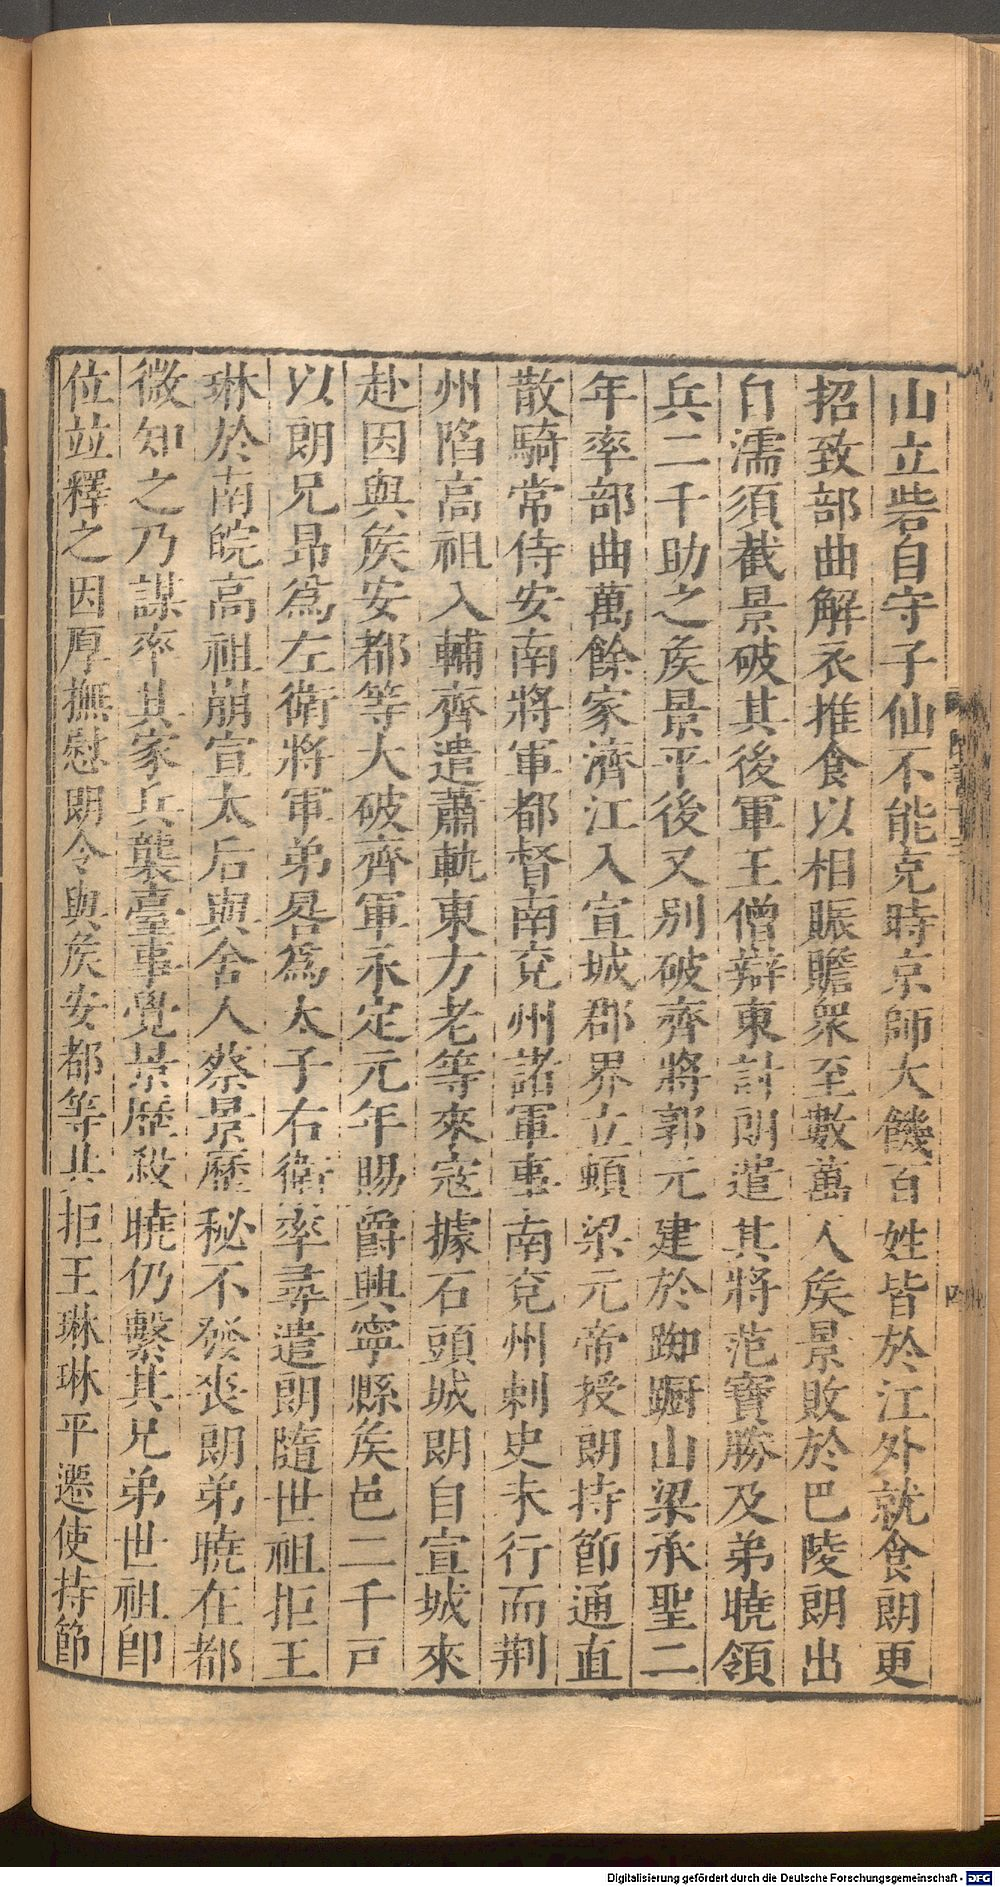 山立砦自守子仙不能克時京師大饑百姓皆於江外就食朗更
招致部曲解衣推食以相賑贍衆至數萬人矦景敗於巴陵朗出
自濡須截景破其後軍王僧辯東討朗遣其將范寶勝及弟曉領
兵二千助之矦景平後又别破齊將郭元建於踟蹰山梁承聖二
年率部曲萬餘家濟江入宣城郡界立頓梁元帝授朗持節通直
散騎常侍安南將軍都督南兗州諸軍事南兗州刺史未行而荆
州陷高祖入輔齊遣蕭軌東方老等來寇據石頭城朗自宣城來
赴因與矦安都等大破齊軍永定元年賜爵興寧縣矦邑二千戸
以朗兄昂爲左衛將軍弟晷爲太子右衛率尋遣朗隨世祖拒王
琳於南皖高祖崩宣太后與舍人蔡景歷秘不發丧朗弟曉在都
微知之乃謀率其家兵襲臺事覺景歷殺曉仍繫其兄弟世祖卽
位竝釋之因厚撫慰朗令與矦安都等共拒王琳琳平遷使持節
四
Digitalisierung gefördert durch die Deutsche Forschungsgemeinschaft - DFG